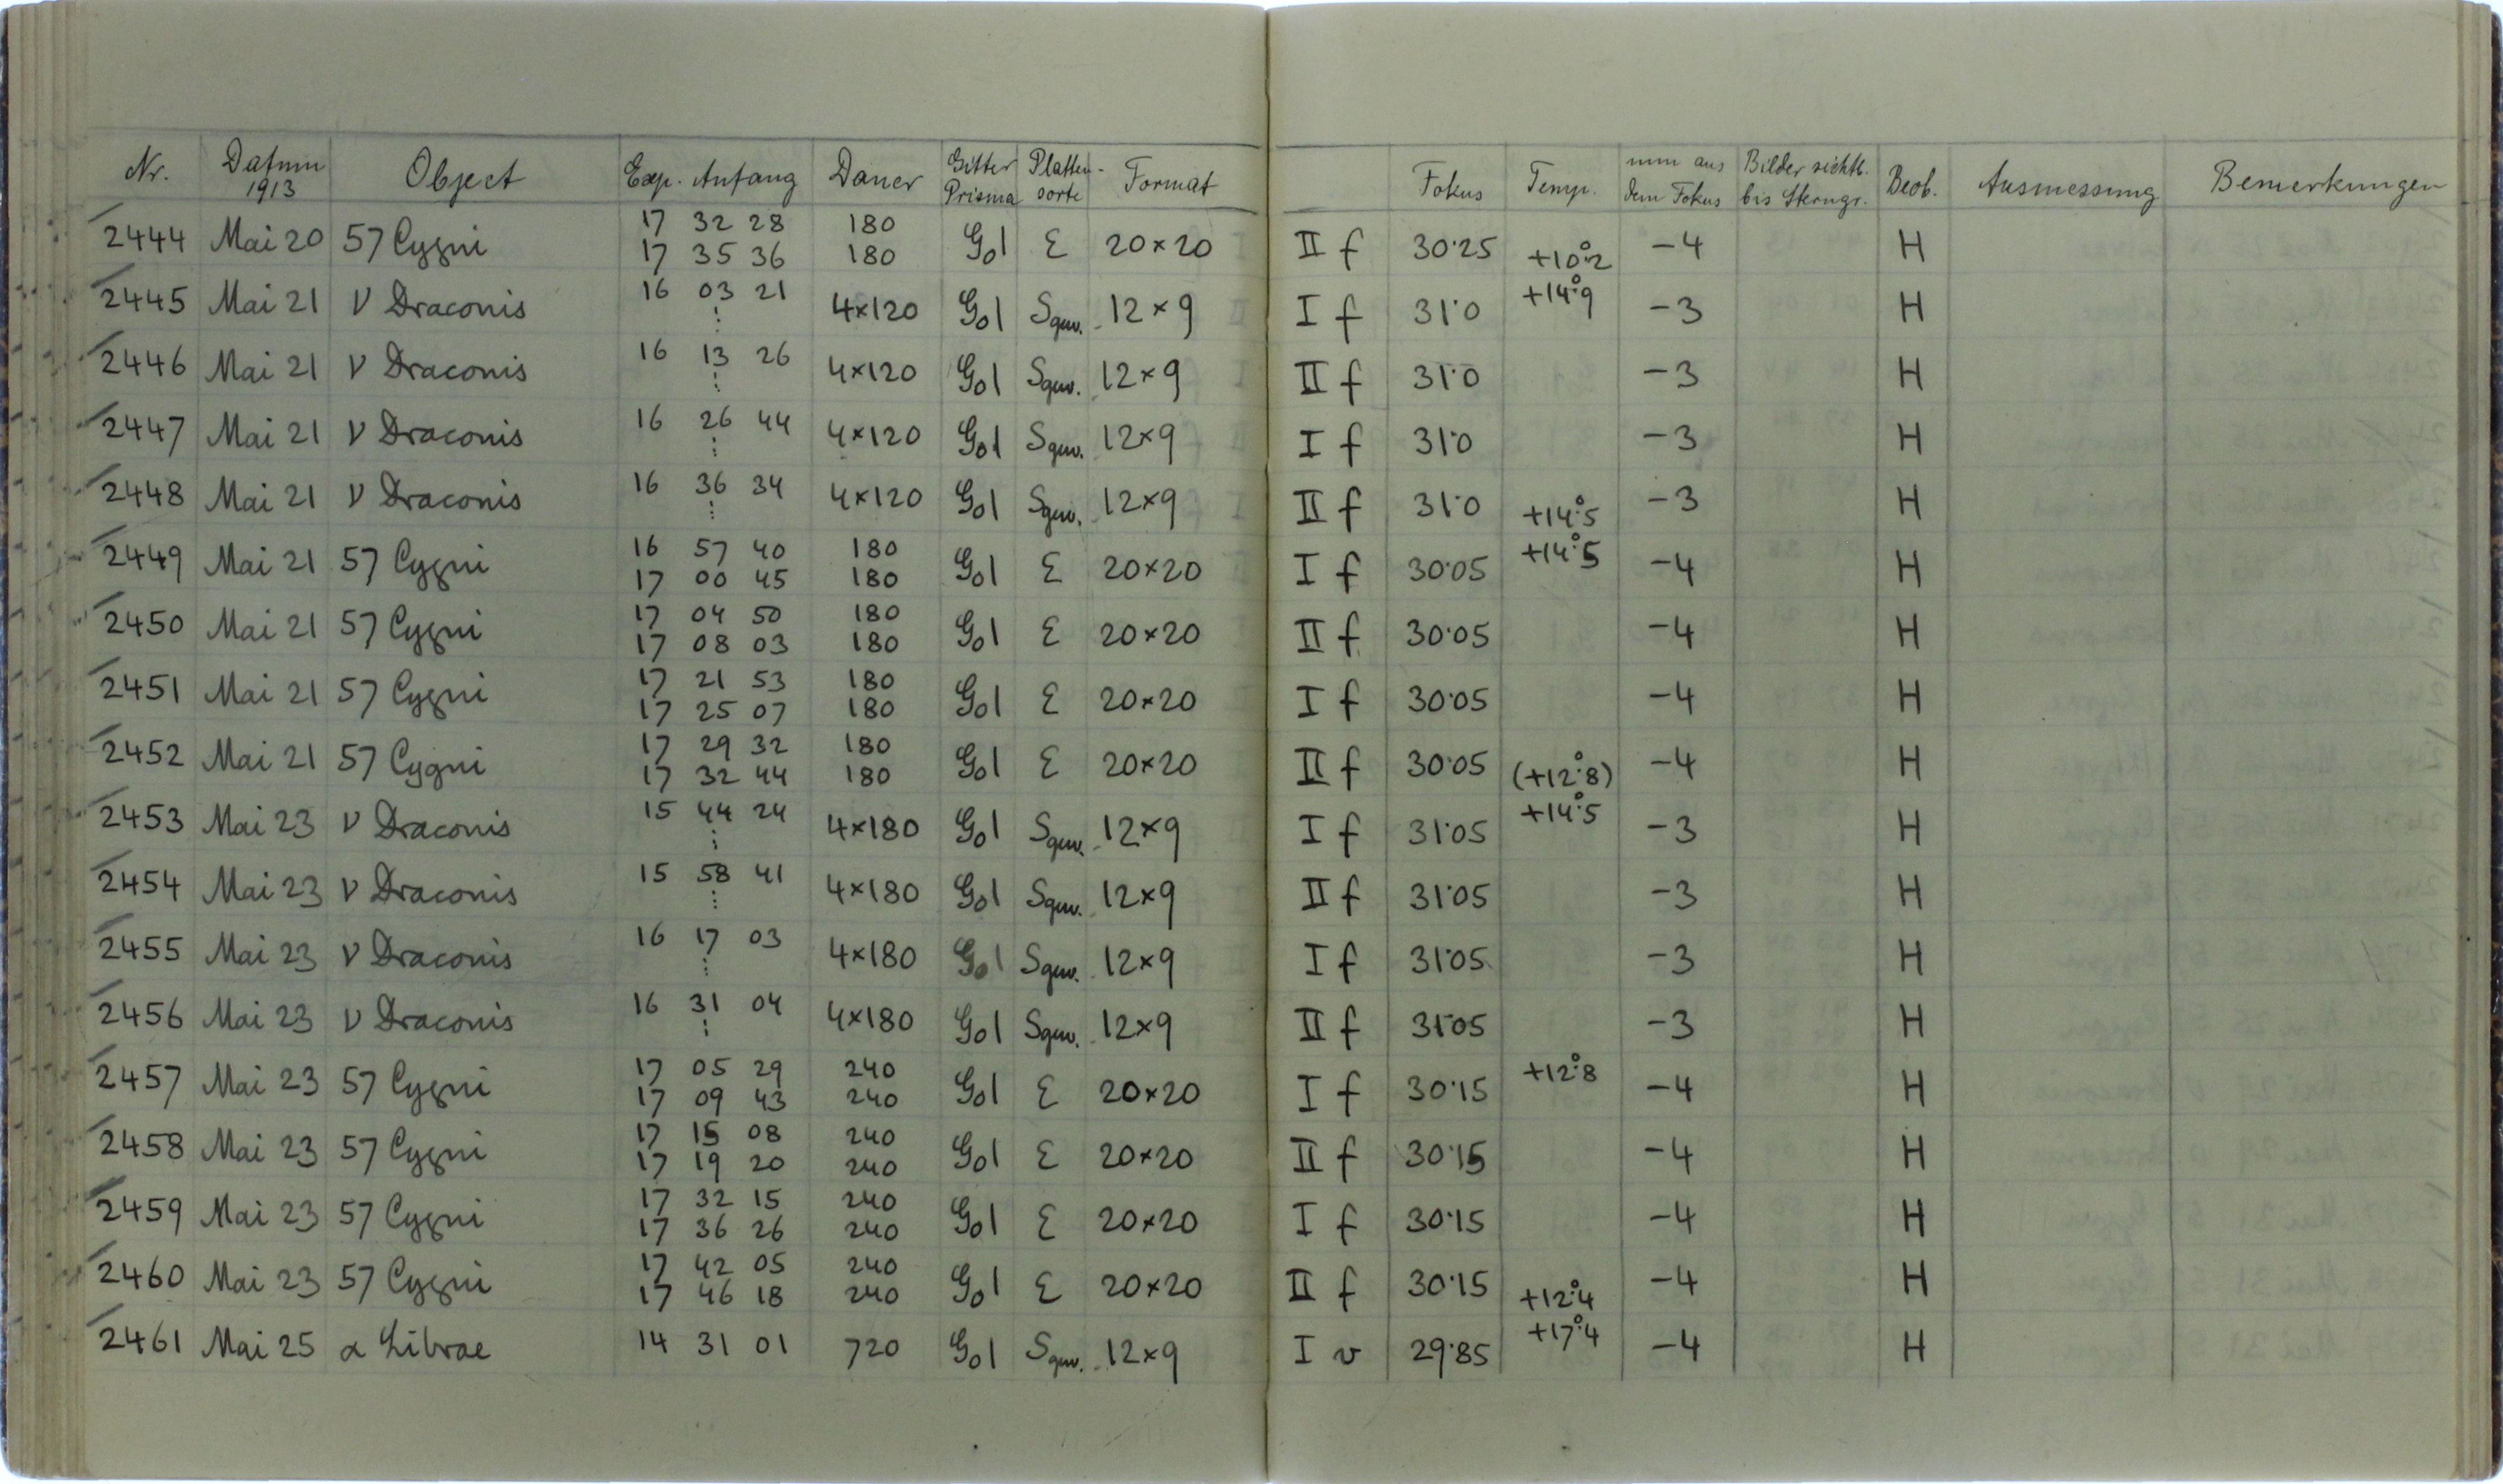 Nr. Datum 1913 Object Exp. Anfang Dauer Gitter Prisma Platten-sorte Format Fokus Temp. mm aus dem Fokus Bilder sichtb. bis Sterngr. Beob. Ausmessung Bemerkungen
2444 Mai 20 57 Cygni 17 32 28 180 G01 E 20×20 II f 30.25 +10°.2 -4 H
17 35 36 180
2445 Mai 21 ν Draconis 16 03 21 ⋮ 4×120 G01 Sgw. 12×9 I f 31.0 +14°.9 -3 H
2446 Mai 21 ν Draconis 16 13 26 ⋮ 4×120 G01 Sgw. 12×9 II f 31.0 -3 H
2447 Mai 21 ν Draconis 16 26 44 ⋮ 4×120 G01 Sgw. 12×9 I f 31.0 -3 H
2448 Mai 21 ν Draconis 16 36 34 ⋮ 4×120 G01 Sgw. 12×9 II f 31.0 +14°.5 -3 H
2449 Mai 21 57 Cygni 16 57 40 180 G01 E 20×20 I f 30.05 +14°.5 -4 H
17 00 45 180
2450 Mai 21 57 Cygni 17 04 50 180 G01 E 20×20 II f 30.05 -4 H
17 08 03 180
2451 Mai 21 57 Cygni 17 21 53 180 G01 E 20×20 I f 30.05 -4 H
17 25 07 180
2452 Mai 21 57 Cygni 17 29 32 180 G01 E 20×20 II f 30.05 (+12°.8) -4 H
17 32 44 180
2453 Mai 23 ν Draconis 15 44 24 ⋮ 4×180 G01 Sgw. 12×9 I f 31.05 +14°.5 -3 H
2454 Mai 23 ν Draconis 15 58 41 ⋮ 4×180 G01 Sgw. 12×9 II f 31.05 -3 H
2455 Mai 23 ν Draconis 16 17 03 ⋮ 4×180 G01 Sgw. 12×9 I f 31.05 -3 H
2456 Mai 23 ν Draconis 16 31 04 ⋮ 4×180 G01 Sgw. 12×9 II f 31.05 -3 H
2457 Mai 23 57 Cygni 17 05 29 240 G01 E 20×20 I f 30.15 +12°.8 -4 H
17 09 43 240
2458 Mai 23 57 Cygni 17 15 08 240 G01 E 20×20 II f 30.15 -4 H
17 19 20 240
2459 Mai 23 57 Cygni 17 32 15 240 G01 E 20×20 I f 30.15 -4 H
17 36 26 240
2460 Mai 23 57 Cygni 17 42 05 240 G01 E 20×20 II f 30.15 +12°.4 -4 H
17 46 18 240
2461 Mai 25 α Librae 14 31 01 720 G01 Sgw. 12×9 I v 29.85 +17°.4 -4 H